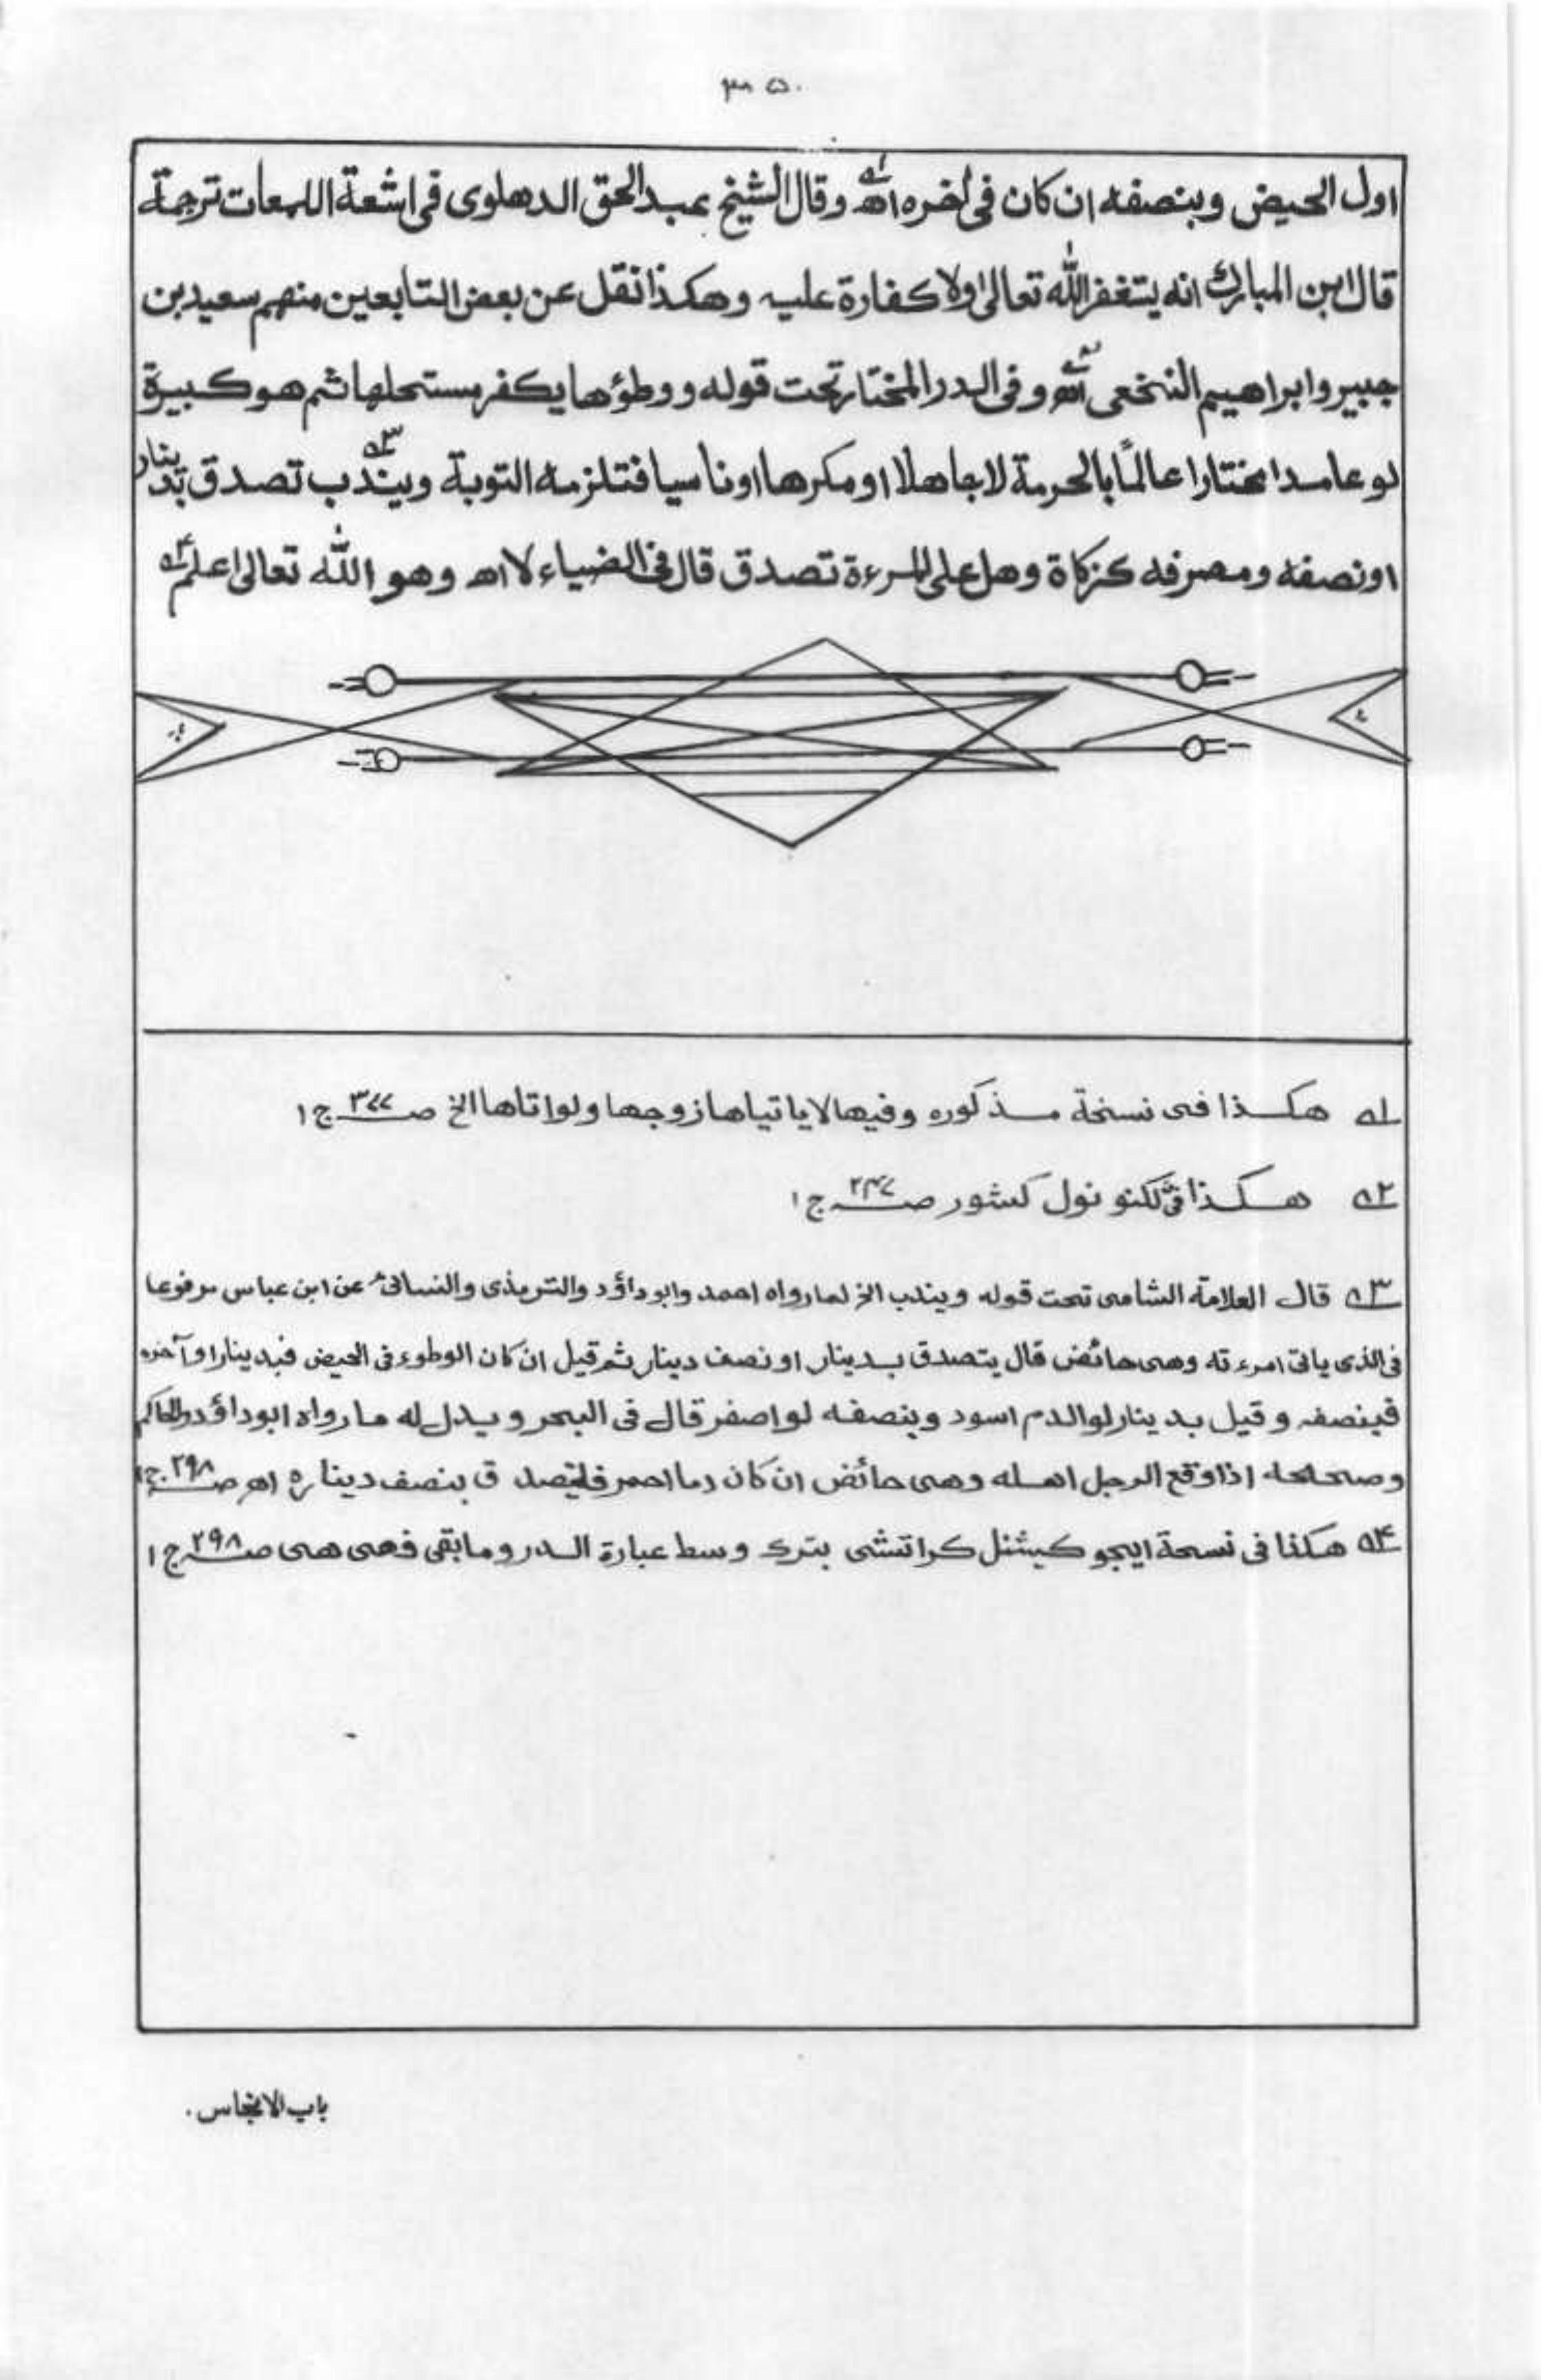 ۳۵۰
اول الحیض وبنصفه ان کان فی اٰخره اھ ۱ وقال الشیخ عبد الحق الدهلوی فی اشعة اللمعات ترجمة
قال ابن المبارك انه یستغفر الله تعالیٰ ولا کفارة علیه وهکذا نقل عن بعض التابعین منهم سعید بن
جبیر وابراهیم النخعی اھ ۲ وفی الدر المختار تحت قوله ووطؤها یکفر مستحلها ثم هو کبیرة
لو عامدا مختارا عالمًا بالحرمة لا جاهلا او مکرها او ناسیا فتلزمه التوبة ویندب ۳ تصدق بدینار
او نصفه ومصرفه کزکاة وهل علی المرءة تصدق قال فی الضیاء لا اھ وهو الله تعالیٰ اعلم ۴
۱ هکذا فی نسخة مذکوره وفیها لا یاتیاها زوجها ولو اتاها الخ صـ ۳۷۷ ج ۱
۲ هکذا فی لکنو نول کشور صـ ۲۴۷ ج ۱
۳ قال العلامة الشامی تحت قوله ویندب الخ لما رواه احمد وابو داؤد والترمذی والنسائی عن ابن عباس مرفوعا
فی الذی یاتی امرءته وهی حائض قال یتصدق بدینار او نصف دینار ثم قیل ان کان الوطوء فی الحیض فبدینار او آخره
فبنصفه وقیل بدینار لو الدم اسود وبنصفه لو اصفر قال فی البحر ویدل له ما رواه ابو داؤد والحاکم
وصححه اذا وقع الرجل اهله وهی حائض ان کان دما احمر فلیتصد ق بنصف دیناره اھ صـ ۲۹۸ ج ۱
۴ هکذا فی نسخة ایجو کیشنل کراتشی بترك وسط عبارة الدر وما بقی فهی هی صـ ۲۹۸ ج ۱
باب الانجاس.